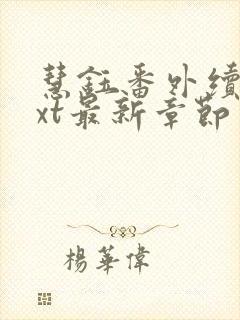 慧鈺番外續
xt最新章節
楊華偉